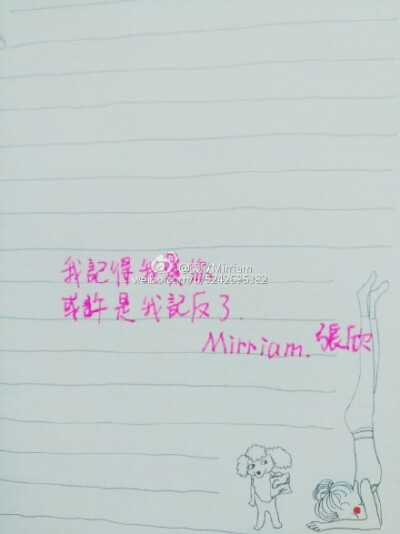 我記得我愛你
或許是我記反了.
Mirriam.張欣
@张欣Mirriam
weibo.com/5242695382